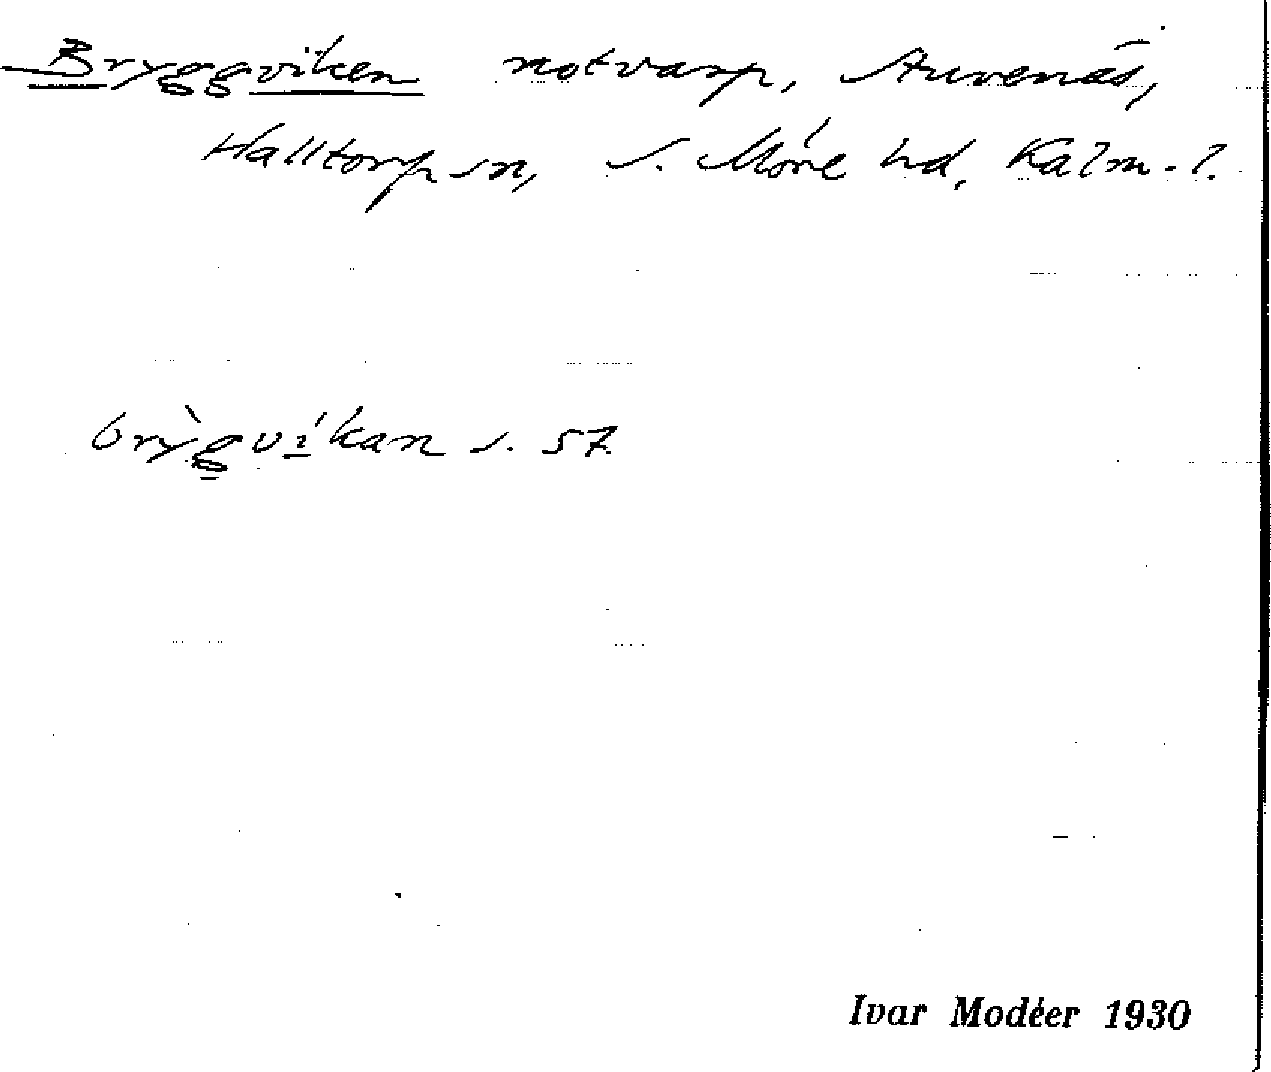 Bryggviken notvarp, Auvenäs,
Halltorp sn, S. Möre hd, Kalm. l.
brỳg̳ví̲kan s. 57.
Ivar Modéer 1930